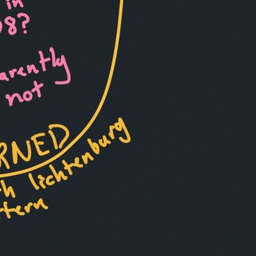 in
08?
arently
not
RNED
th lichtenburg
ttern